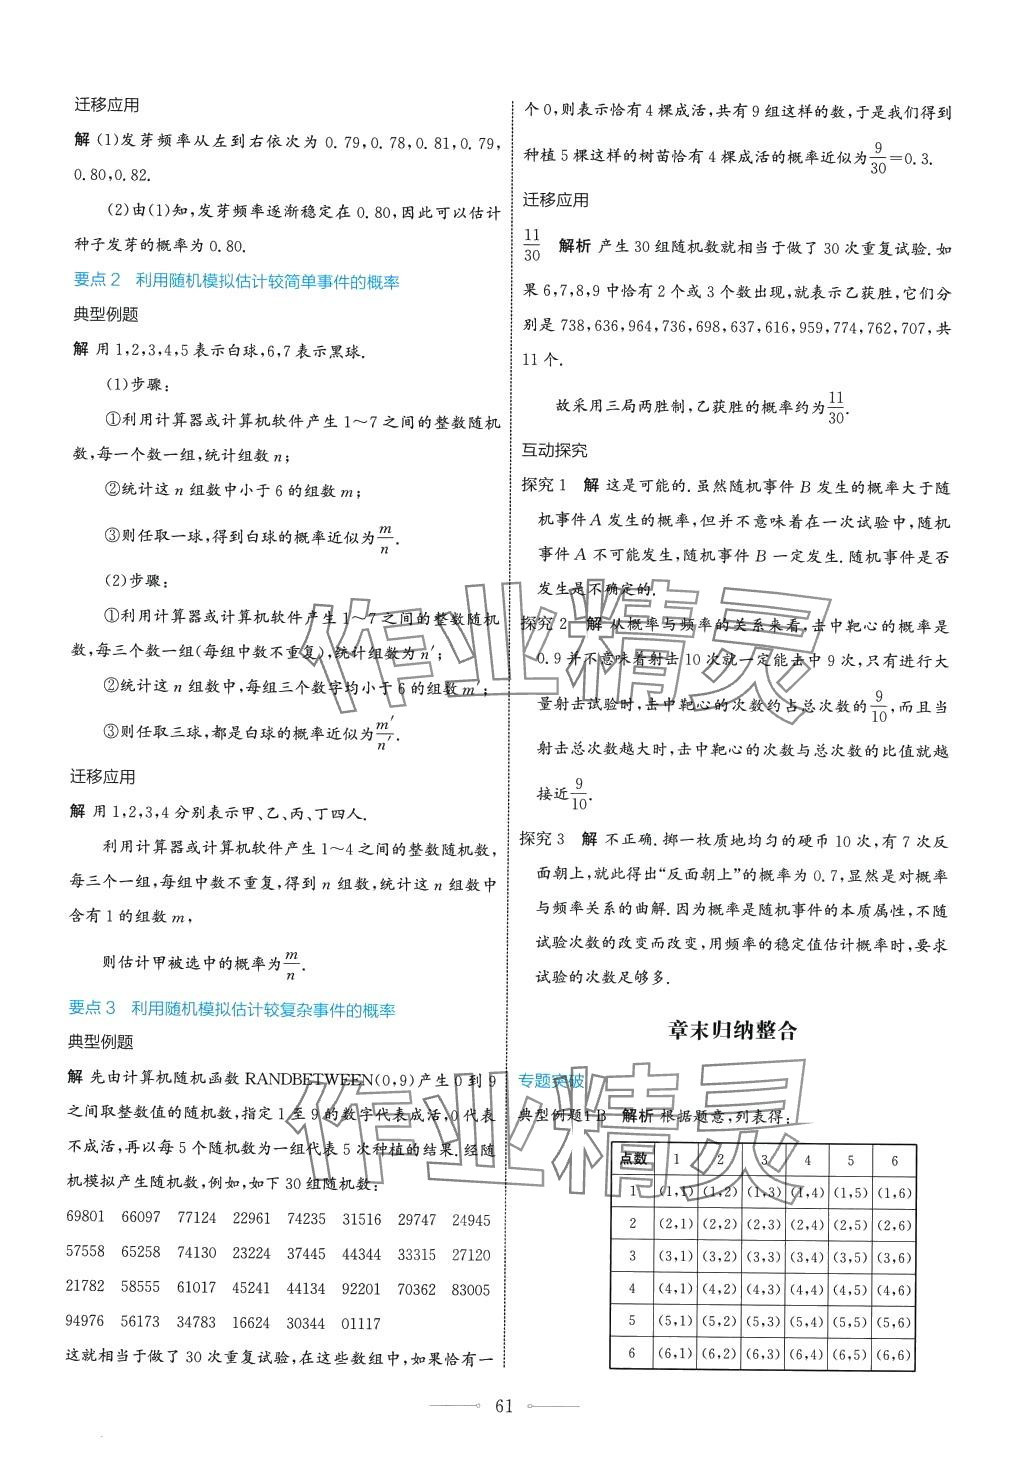 迁移应用
解 (1)发芽频率从左到右依次为 0.79,0.78,0.81,0.79,
0.80,0.82.
(2)由(1)知,发芽频率逐渐稳定在 0.80,因此可以估计
种子发芽的概率为 0.80.
要点2 利用随机模拟估计较简单事件的概率
典型例题
解 用 1,2,3,4,5 表示白球,6,7 表示黑球.
(1)步骤:
①利用计算器或计算机软件产生 1～7 之间的整数随机
数,每一个数一组,统计组数 n;
②统计这 n 组数中小于 6 的组数 m;
③则任取一球,得到白球的概率近似为 m/n.
(2)步骤:
①利用计算器或计算机软件产生 1～7 之间的整数随机
数,每三个数一组(每组中数不重复),统计组数为 n′;
②统计这 n 组数中,每组三个数字均小于 6 的组数 m′;
③则任取三球,都是白球的概率近似为 m′/n′.
迁移应用
解 用 1,2,3,4 分别表示甲、乙、丙、丁四人.
利用计算器或计算机软件产生 1～4 之间的整数随机数,
每三个一组,每组中数不重复,得到 n 组数,统计这 n 组数中
含有 1 的组数 m,
则估计甲被选中的概率为 m/n.
要点3 利用随机模拟估计较复杂事件的概率
典型例题
解 先由计算机随机函数 RANDBETWEEN(0,9)产生 0 到 9
之间取整数值的随机数,指定 1 至 9 的数字代表成活,0 代表
不成活,再以每 5 个随机数为一组代表 5 次种植的结果.经随
机模拟产生随机数,例如,如下 30 组随机数:
69801 66097 77124 22961 74235 31516 29747 24945
57558 65258 74130 23224 37445 44344 33315 27120
21782 58555 61017 45241 44134 92201 70362 83005
94976 56173 34783 16624 30344 01117
这就相当于做了 30 次重复试验,在这些数组中,如果恰有一
个 0,则表示恰有 4 棵成活,共有 9 组这样的数,于是我们得到
种植 5 棵这样的树苗恰有 4 棵成活的概率近似为 9/30=0.3.
迁移应用
11/30 解析 产生 30 组随机数就相当于做了 30 次重复试验.如
果 6,7,8,9 中恰有 2 个或 3 个数出现,就表示乙获胜,它们分
别是 738,636,964,736,698,637,616,959,774,762,707,共
11 个.
故采用三局两胜制,乙获胜的概率约为 11/30.
互动探究
探究 1 解 这是可能的.虽然随机事件 B 发生的概率大于随
机事件 A 发生的概率,但并不意味着在一次试验中,随机
事件 A 不可能发生,随机事件 B 一定发生.随机事件是否
发生是不确定的.
探究 2 解 从概率与频率的关系来看,击中靶心的概率是
0.9 并不意味着射击 10 次就一定能击中 9 次,只有进行大
量射击试验时,击中靶心的次数约占总次数的 9/10,而且当
射击总次数越大时,击中靶心的次数与总次数的比值就越
接近 9/10.
探究 3 解 不正确.掷一枚质地均匀的硬币 10 次,有 7 次反
面朝上,就此得出“反面朝上”的概率为 0.7,显然是对概率
与频率关系的曲解.因为概率是随机事件的本质属性,不随
试验次数的改变而改变,用频率的稳定值估计概率时,要求
试验的次数足够多.
章末归纳整合
专题突破
典型例题1 B 解析 根据题意,列表得:
点数 1 2 3 4 5 6
1 (1,1) (1,2) (1,3) (1,4) (1,5) (1,6)
2 (2,1) (2,2) (2,3) (2,4) (2,5) (2,6)
3 (3,1) (3,2) (3,3) (3,4) (3,5) (3,6)
4 (4,1) (4,2) (4,3) (4,4) (4,5) (4,6)
5 (5,1) (5,2) (5,3) (5,4) (5,5) (5,6)
6 (6,1) (6,2) (6,3) (6,4) (6,5) (6,6)
61
作业精灵
作业精灵